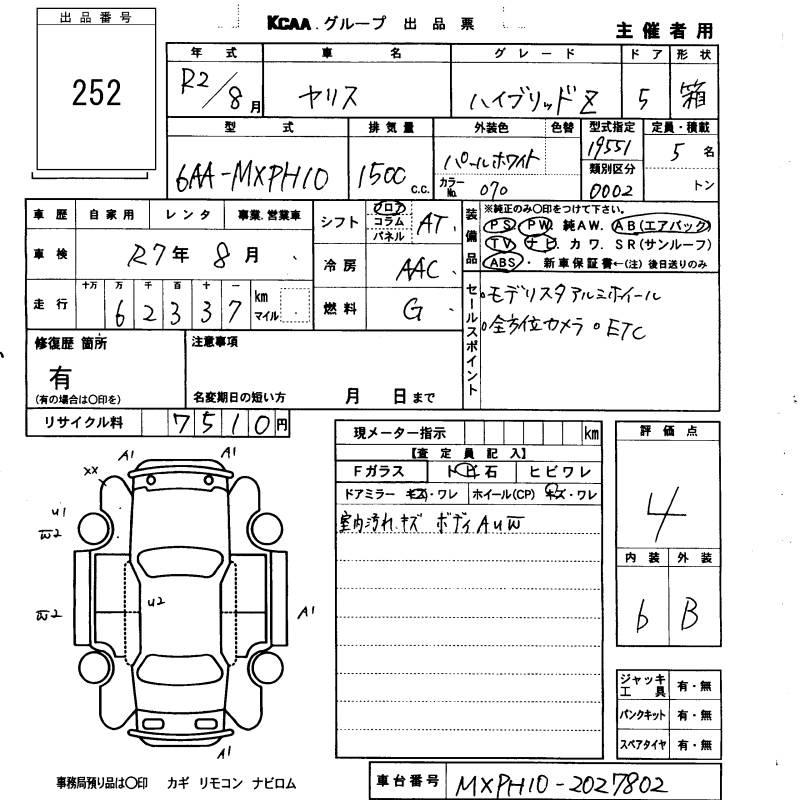 出品番号
252
KCAA グループ 出品票
主催者用
年式 車名 グレード ドア 形状
R2/8月 ヤリス ハイブリッドZ 5 箱
型式 排気量 外装色 色替 型式指定 定員・積載
6AA-MXPH10 1500 c.c. パールホワイト 19551 5名
カラーNo. 070 類別区分 0002 トン
車歴 自家用 レンタ 事業.営業車
シフト フロア コラム パネル AT
車検 R7年 8月
冷房 AAC
走行 十万 万 千 百 十 一
62337 km マイル
燃料 G
装備品 ※純正のみ〇印をつけて下さい。
PS PW 純AW. AB(エアバック)
TV ナビ. カワ. SR(サンルーフ)
ABS・ 新車保証書←(注) 後日送りのみ
セールスポイント
・モデリスタアルミホイール
・全方位カメラ・ETC
修復歴 箇所
有
(有の場合は〇印を)
注意事項
名変期日の短い方 月 日まで
リサイクル料 7510円
現メーター指示 km
【査定員記入】
Fガラス トビ石 ヒビワレ
ドアミラー キズ・ワレ ホイール(CP) キズ・ワレ
室内汚れ.キズ ボディAUW
評価点
4
内装 外装
6 B
ジャッキ工具 有・無
パンクキット 有・無
スペアタイヤ 有・無
A1 A1
XX
U1
W2
W2
U2
A1
A1
事務局預り品は〇印 カギ リモコン ナビロム
車台番号 MXPH10-2027802